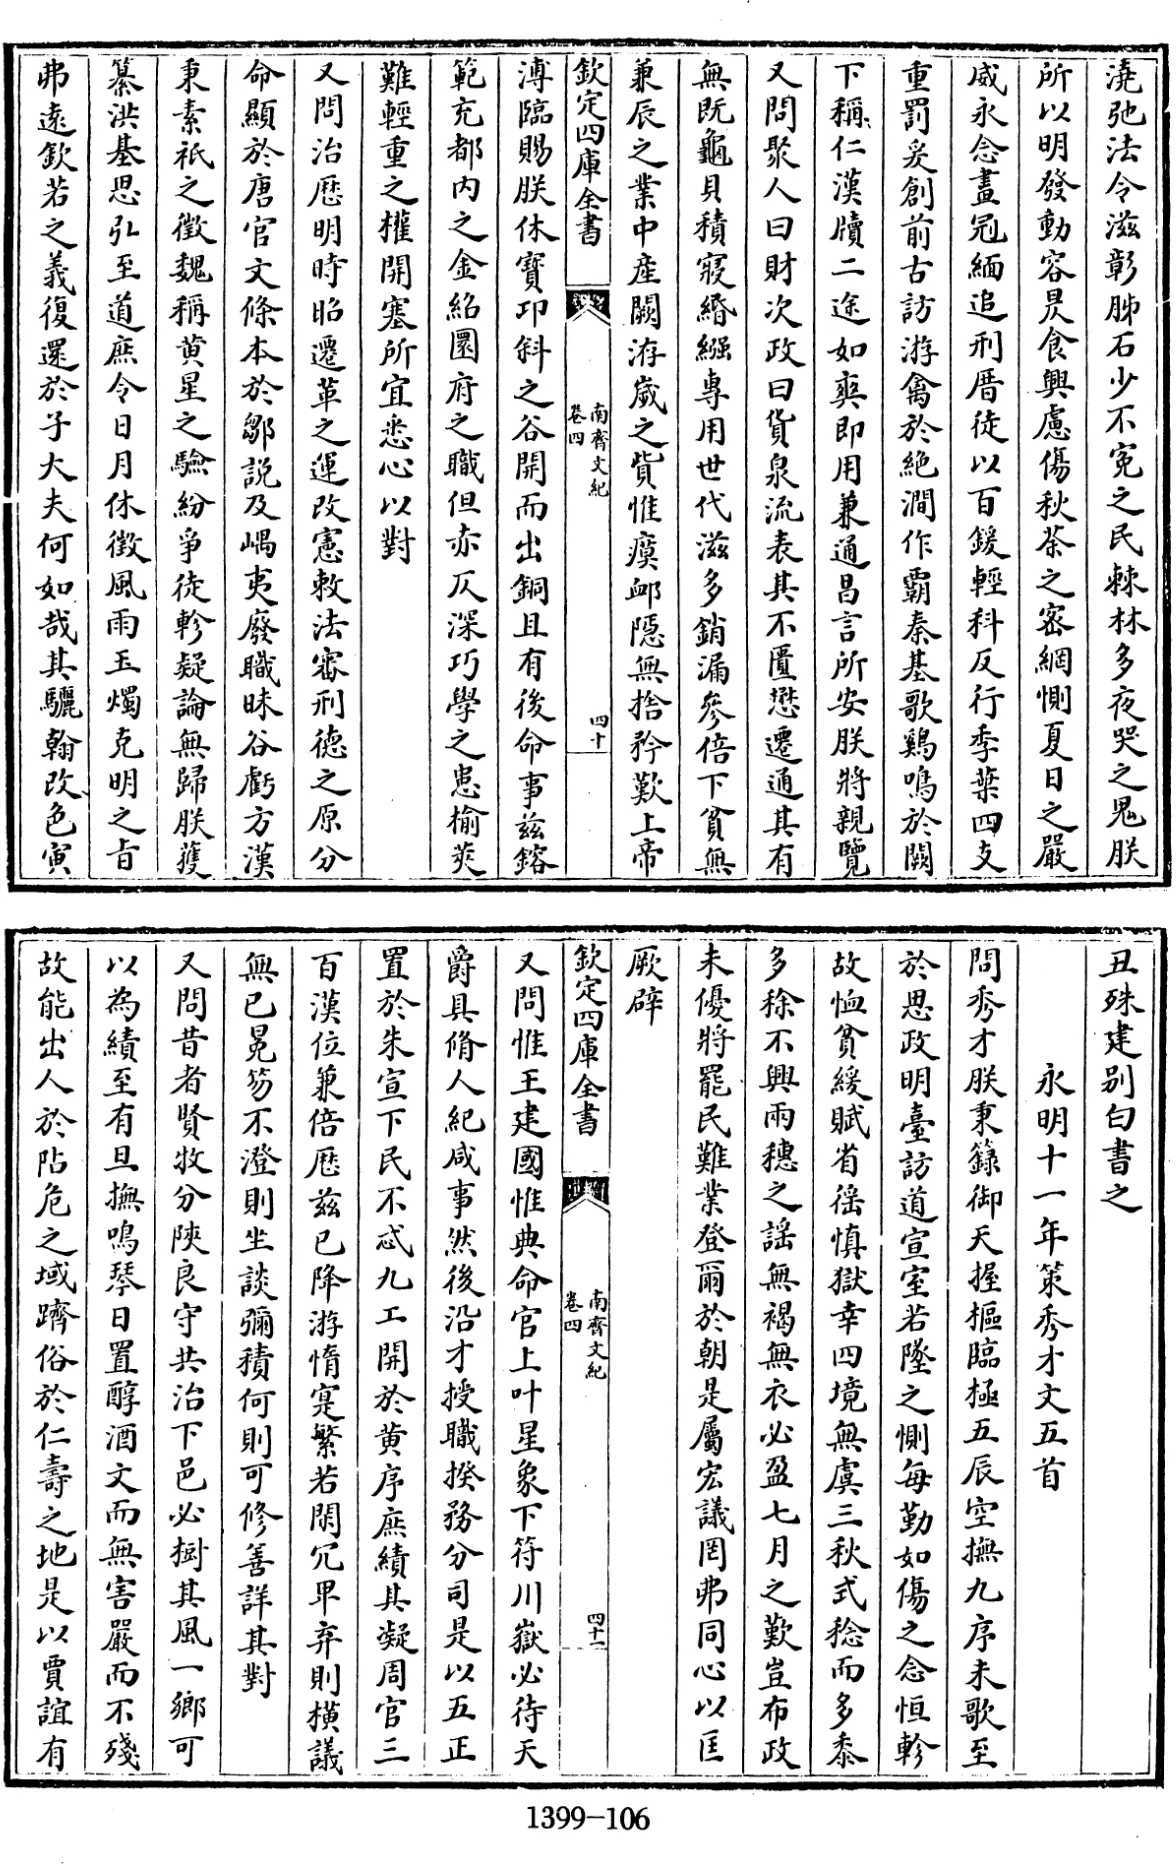 澆弛法令滋彰肺石少不寃之民棘林多夜哭之鬼朕
所以明發動容昃食興慮傷秋荼之宻網惻夏日之嚴
威永念畫冠緬追刑厝徒以百鍰輕科反行季葉四支
重罰爰創前古訪游禽於絶澗作霸秦基歌鷄鳴於闕
下稱仁漢牘二途如爽即用兼通昌言所安朕將親覽
又問聚人曰財次政曰貨泉流表其不匱懋遷通其有
無既龜貝積寢緡繦專用世代滋多銷漏參倍下貧無
兼辰之業中産闕洊歲之貲惟瘼䘏隠無捨矜歎上帝
欽定四庫全書
南齊文紀
卷四
四十
溥臨賜朕休寳卭斜之谷開而出銅且有後命事兹鎔
範充都内之金紹圜府之職但赤仄深巧學之患榆莢
難輕重之權開塞所宜悉心以對
又問治厯明時昭遷革之運改憲敕法審刑德之原分
命顯於唐官文條本於鄒説及嵎夷廢職昧谷虧方漢
秉素祇之徵魏稱黄星之驗紛爭徒軫疑論無歸朕獲
纂洪基思弘至道庶令日月休徴風雨玉燭克明之旨
弗逺欽若之義復還於子大夫何如哉其驪翰改色寅
丑殊建别白書之
永明十一年策秀才文五首
問秀才朕秉籙御天握樞臨極五辰空撫九序未歌至
於思政明臺訪道宣室若墜之惻每勤如傷之念恒軫
故恤貧緩賦省徭慎獄幸四境無虞三秋式稔而多黍
多稌不興兩穗之謡無褐無衣必盈七月之歎豈布政
未優將罷民難業登爾於朝是屬宏議罔弗同心以匡
厥辟
欽定四庫全書
南齊文紀
卷四
四十一
又問惟王建國惟典命官上叶星象下符川嶽必待天
爵具脩人紀咸事然後沿才授職揆務分司是以五正
置於朱宣下民不忒九工開於黄序庶績其凝周官三
百漢位兼倍厯兹已降游惰寔繁若閑冗畢弃則横議
無已冕笏不澄則坐談彌積何則可修善詳其對
又問昔者賢牧分陜良守共治下邑必樹其風一鄉可
以為績至有旦撫鳴琴日置醇酒文而無害嚴而不殘
故能出人於阽危之域躋俗於仁壽之地是以賈誼有
1399-106